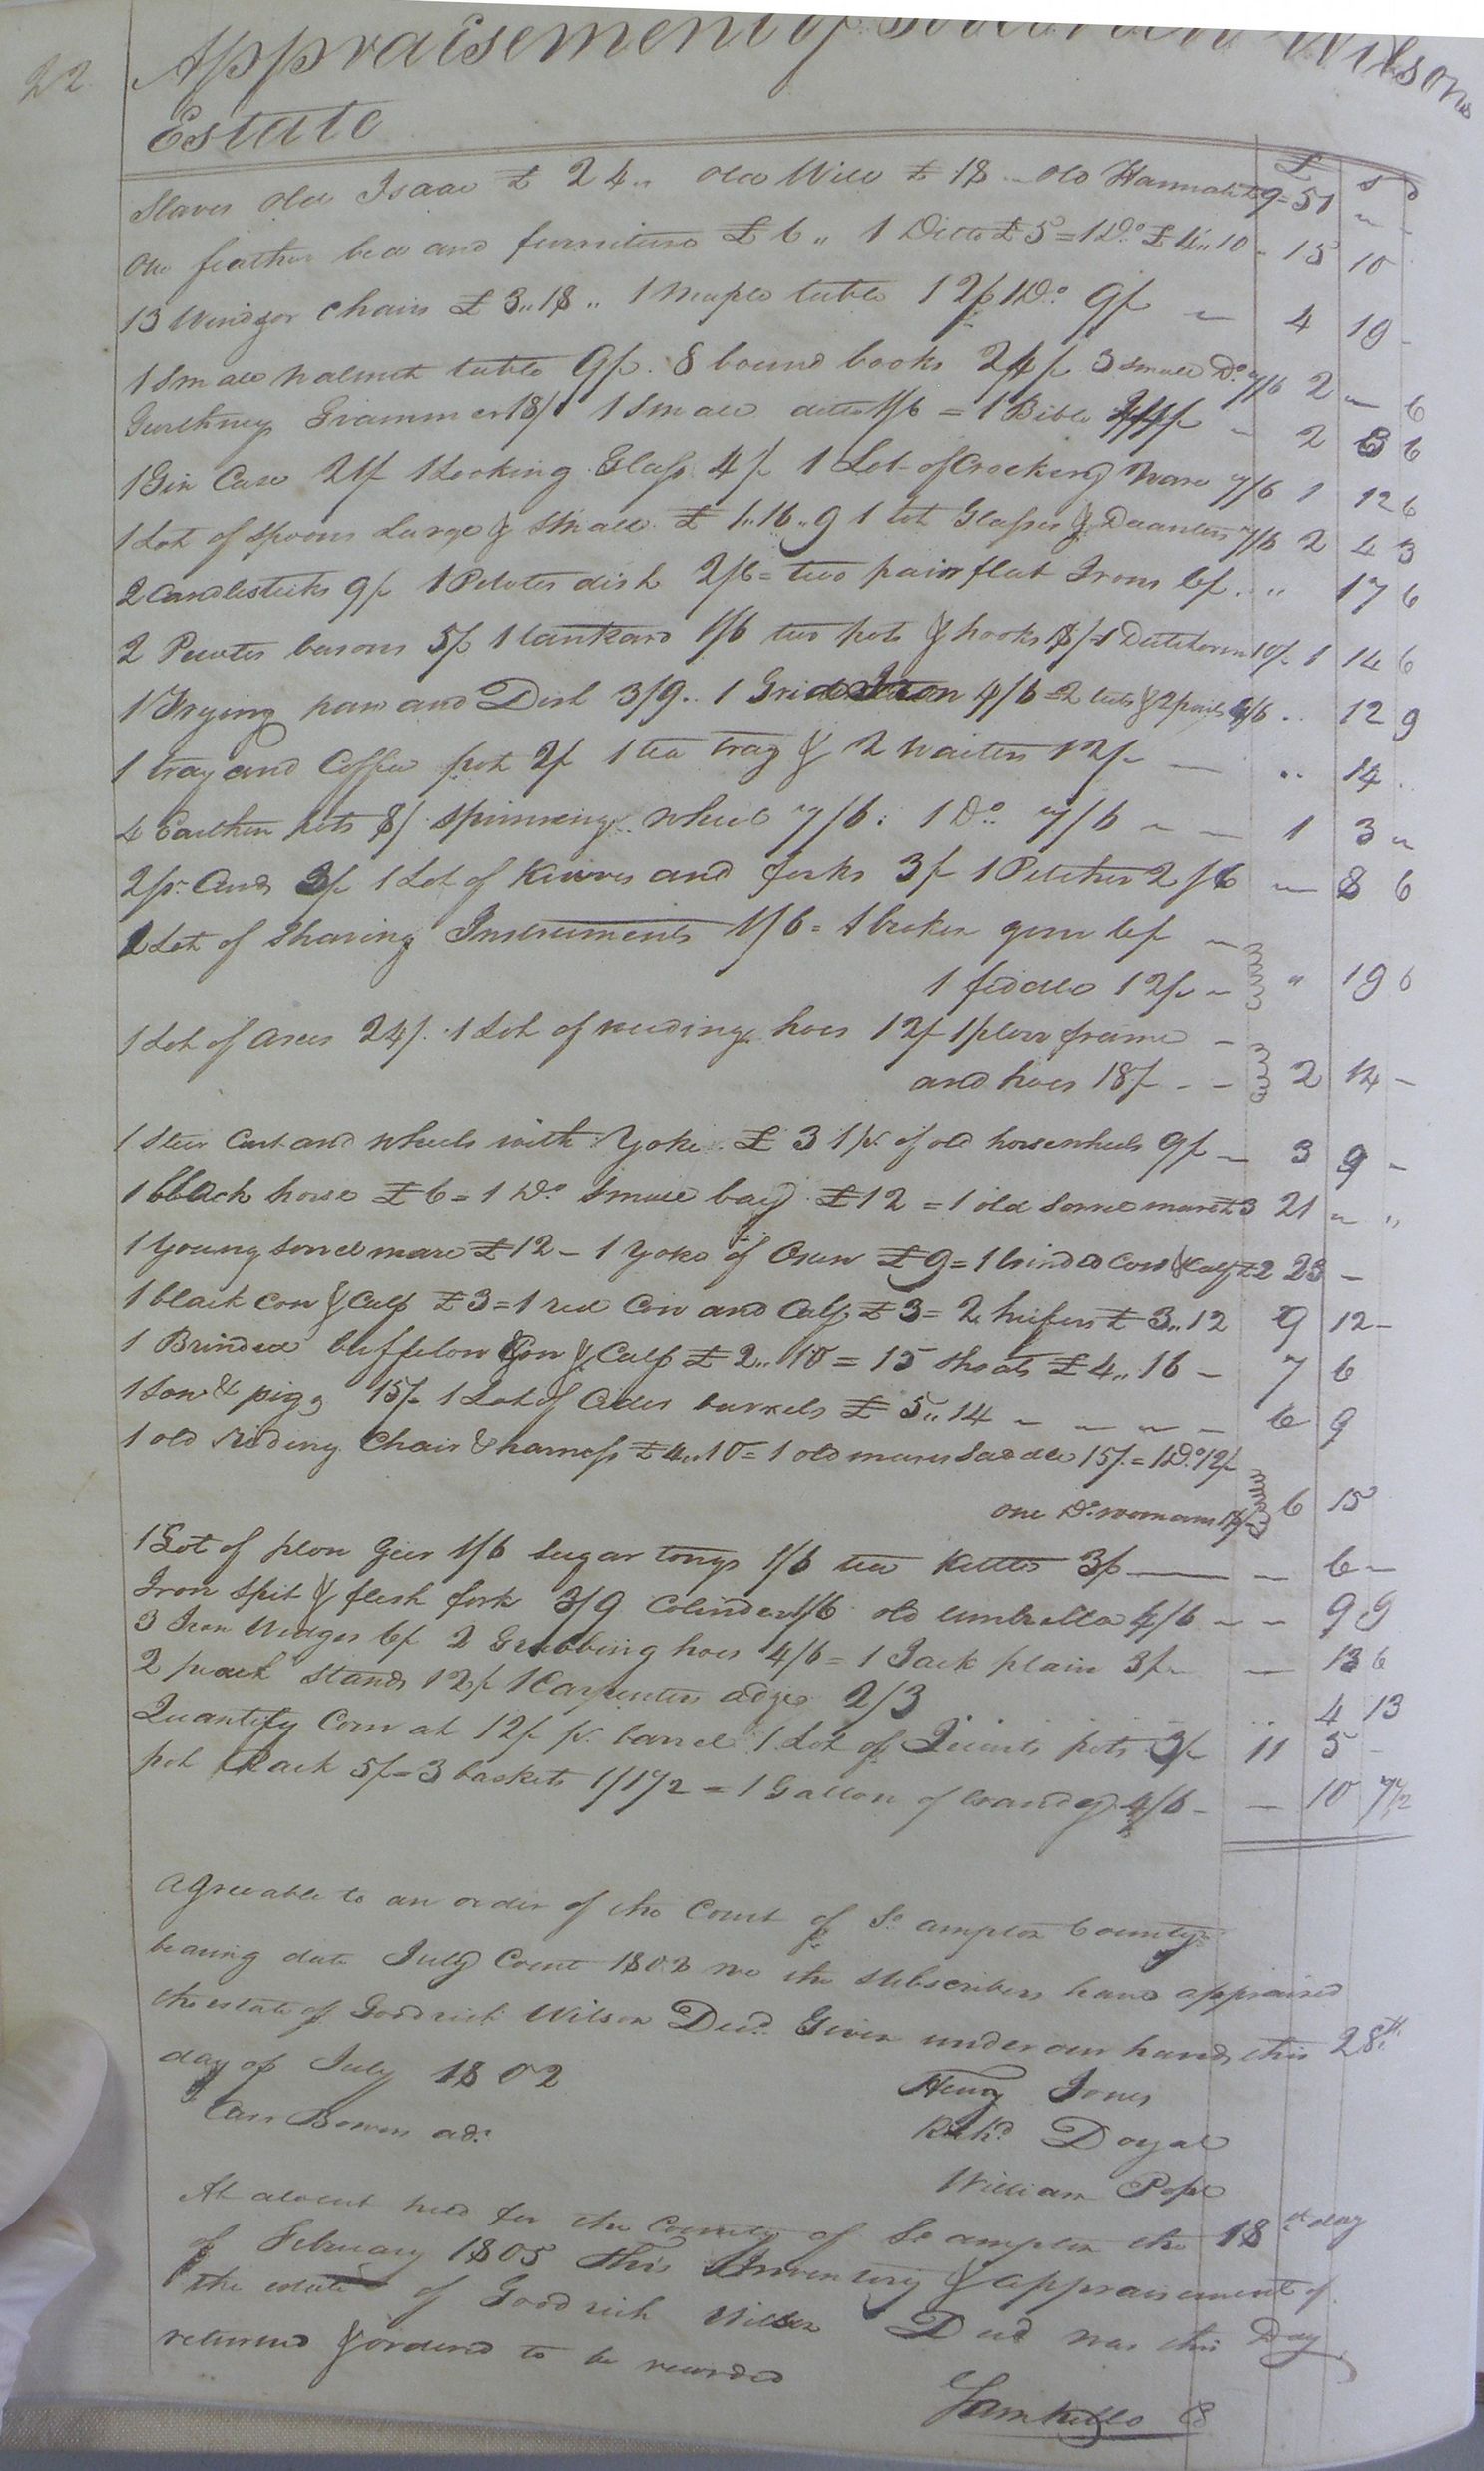 22
Appraisement of Goodrich Wilsons
Estate
£ s d
Slaves old Isaac £ 24 .. old Will £ 18 .. old Hannah £ 9 = 51 " -
One feather bed and furniture £ 6 ,, 1 Ditto £ 5 = 1 Do £ 4 ,, 10 - 15 10
13 Windsor Chairs £ 3 ,, 18 ,, 1 maple table 12/ 1 Do 9/ - 4 19 -
1 Small walnut table 9/. 8 bound books 24/ 3 small Do 7/6 2 - 6
Gurthneys Grammer 18/ 1 Small ditto 1/6 = 1 Bible - 2 3 6
1 Gin Case 21/ 1 Looking Glass 4/ 1 Lot of Crockery Ware 7/6 1 12 6
1 Lot of Spoons Large & Small £ 1 ,, 16 ,, 9 1 Lot Glasses & Decanters 7/6 2 4 3
2 Candlesticks 9/ 1 Pewter dish 2/6 = two pair flat Irons 6/ . " 17 6
2 Pewter basons 5/ 1 tankard 1/6 two pots & hooks 18/ = 1 Dutch oven 10/ 1 14 6
1 Frying pan and Dish 3/9 .. 1 Grid Iron 4/6 = 2 tubs & 2 pails 4/6 .. 12 9
1 tray and Coffee pot 2/ 1 tea tray & 2 waiters 12/ - .. 14 .
4 Earthen pots 8/ Spinning wheel 7/6 : 1 Do 7/6 - - 1 3 "
2 pr. Cards 3/ 1 Lot of Knives and forks 3/ 1 Pitcher 2/6 - 8 6
1 Lot of Shaving Instruments 1/6 = 1 broken gun 6/ -
1 fiddle 12/ - " 19 6
1 Lot of axes 24/. 1 Lot of weeding hoes 12/ 1 plow frame -
and hoes 18/ - - 2 14 -
1 Steer Cart and wheels with Yoke £ 3 1 pr. of old horse wheels 9/ - 3 9 -
1 bblack horse £ 6 = 1 Do Small bay £ 12 = 1 old Sorrel mare £ 3 21 " "
1 Young Sorrel mare £ 12 - 1 Yoke of Oxen £ 9 = 1 brinded Cow & Calf £ 2 23 -
1 black Cow & Calf £ 3 = 1 red Cow and Calf £ 3 = 2 heifers £ 3 ,, 12 9 12 -
1 Brinded buffelow Cow & Calf £ 2 ,, 10 = 15 Shoats £ 4 ,, 16 - 7 6
1 Sow & pigs 15/ 1 Lot of Cider barrels £ 5 ,, 14 - - - - 6 9
1 old Riding Chair & harness £ 4 ,, 10 = 1 old mans Saddle 15/. = 1 Do 12/
one Do womans 18/ - 6 15
1 Lot of plow Geer 1/6 sugar tongs 1/6 tea Kettle 3/ - - 6 -
Iron Spit & flesh fork 3/9 Colinder 1/6 old umbrella 4/6 - - 9 9
3 Iron Wedges 6/ 2 Grubbing hoes 4/6 = 1 Jack plain 3/ - - 13 6
2 Stands 12/ 1 Carpenters adze 2/3 .. 4 13
Quantity Corn at 12/ pr. barrel 1 Lot of pots 3/ 11 5 -
pot Rack 5/ = 3 baskets 1/1 1/2 = 1 Gallon of brandy 4/6 - - 10 7 1/2
Agreeable to an order of the Court of So ampton County
bearing date July Court 1802 we the Subscribers have appraised
the estate of Goodrich Wilson Decd. Given under our hands this 28th.
day of July 1802
Henry Jones
Carr Bowers ad.
Richd. Doyal
William Pope
At a Court held for the County of So ampton the 18th day
of February 1805 This Inventory & appraisement of
the estate of Goodrich Wilson Decd was this Day
returned & ordered to be recorded
Sam Kello C